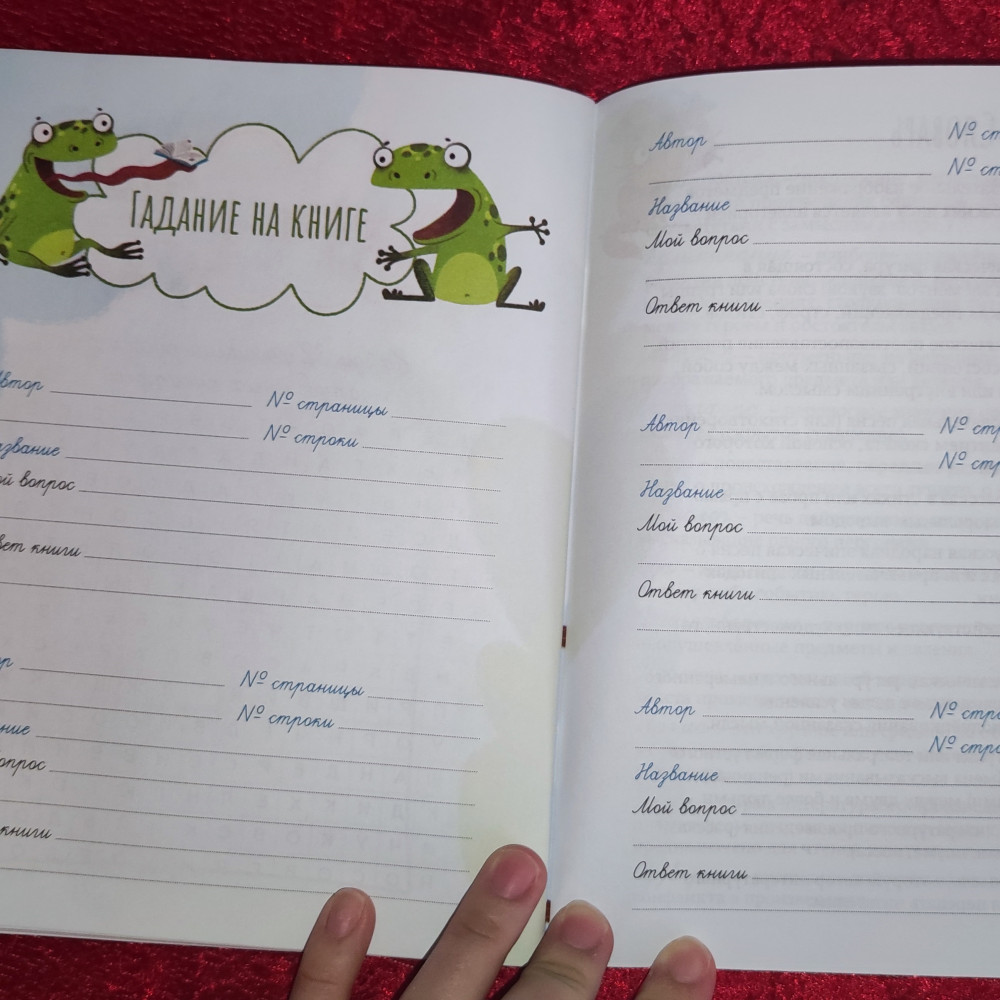 ГАДАНИЕ НА КНИГЕ
Автор
№ страницы
№ строки
Название
Мой вопрос
Ответ книги
№ страницы
№ строки
Автор
№ ст
№ ст
Название
Мой вопрос
Ответ книги
Автор
№ стр
№ стро
Название
Мой вопрос
Ответ книги
Автор
№ стра
№ стро
Название
Мой вопрос
Ответ книги